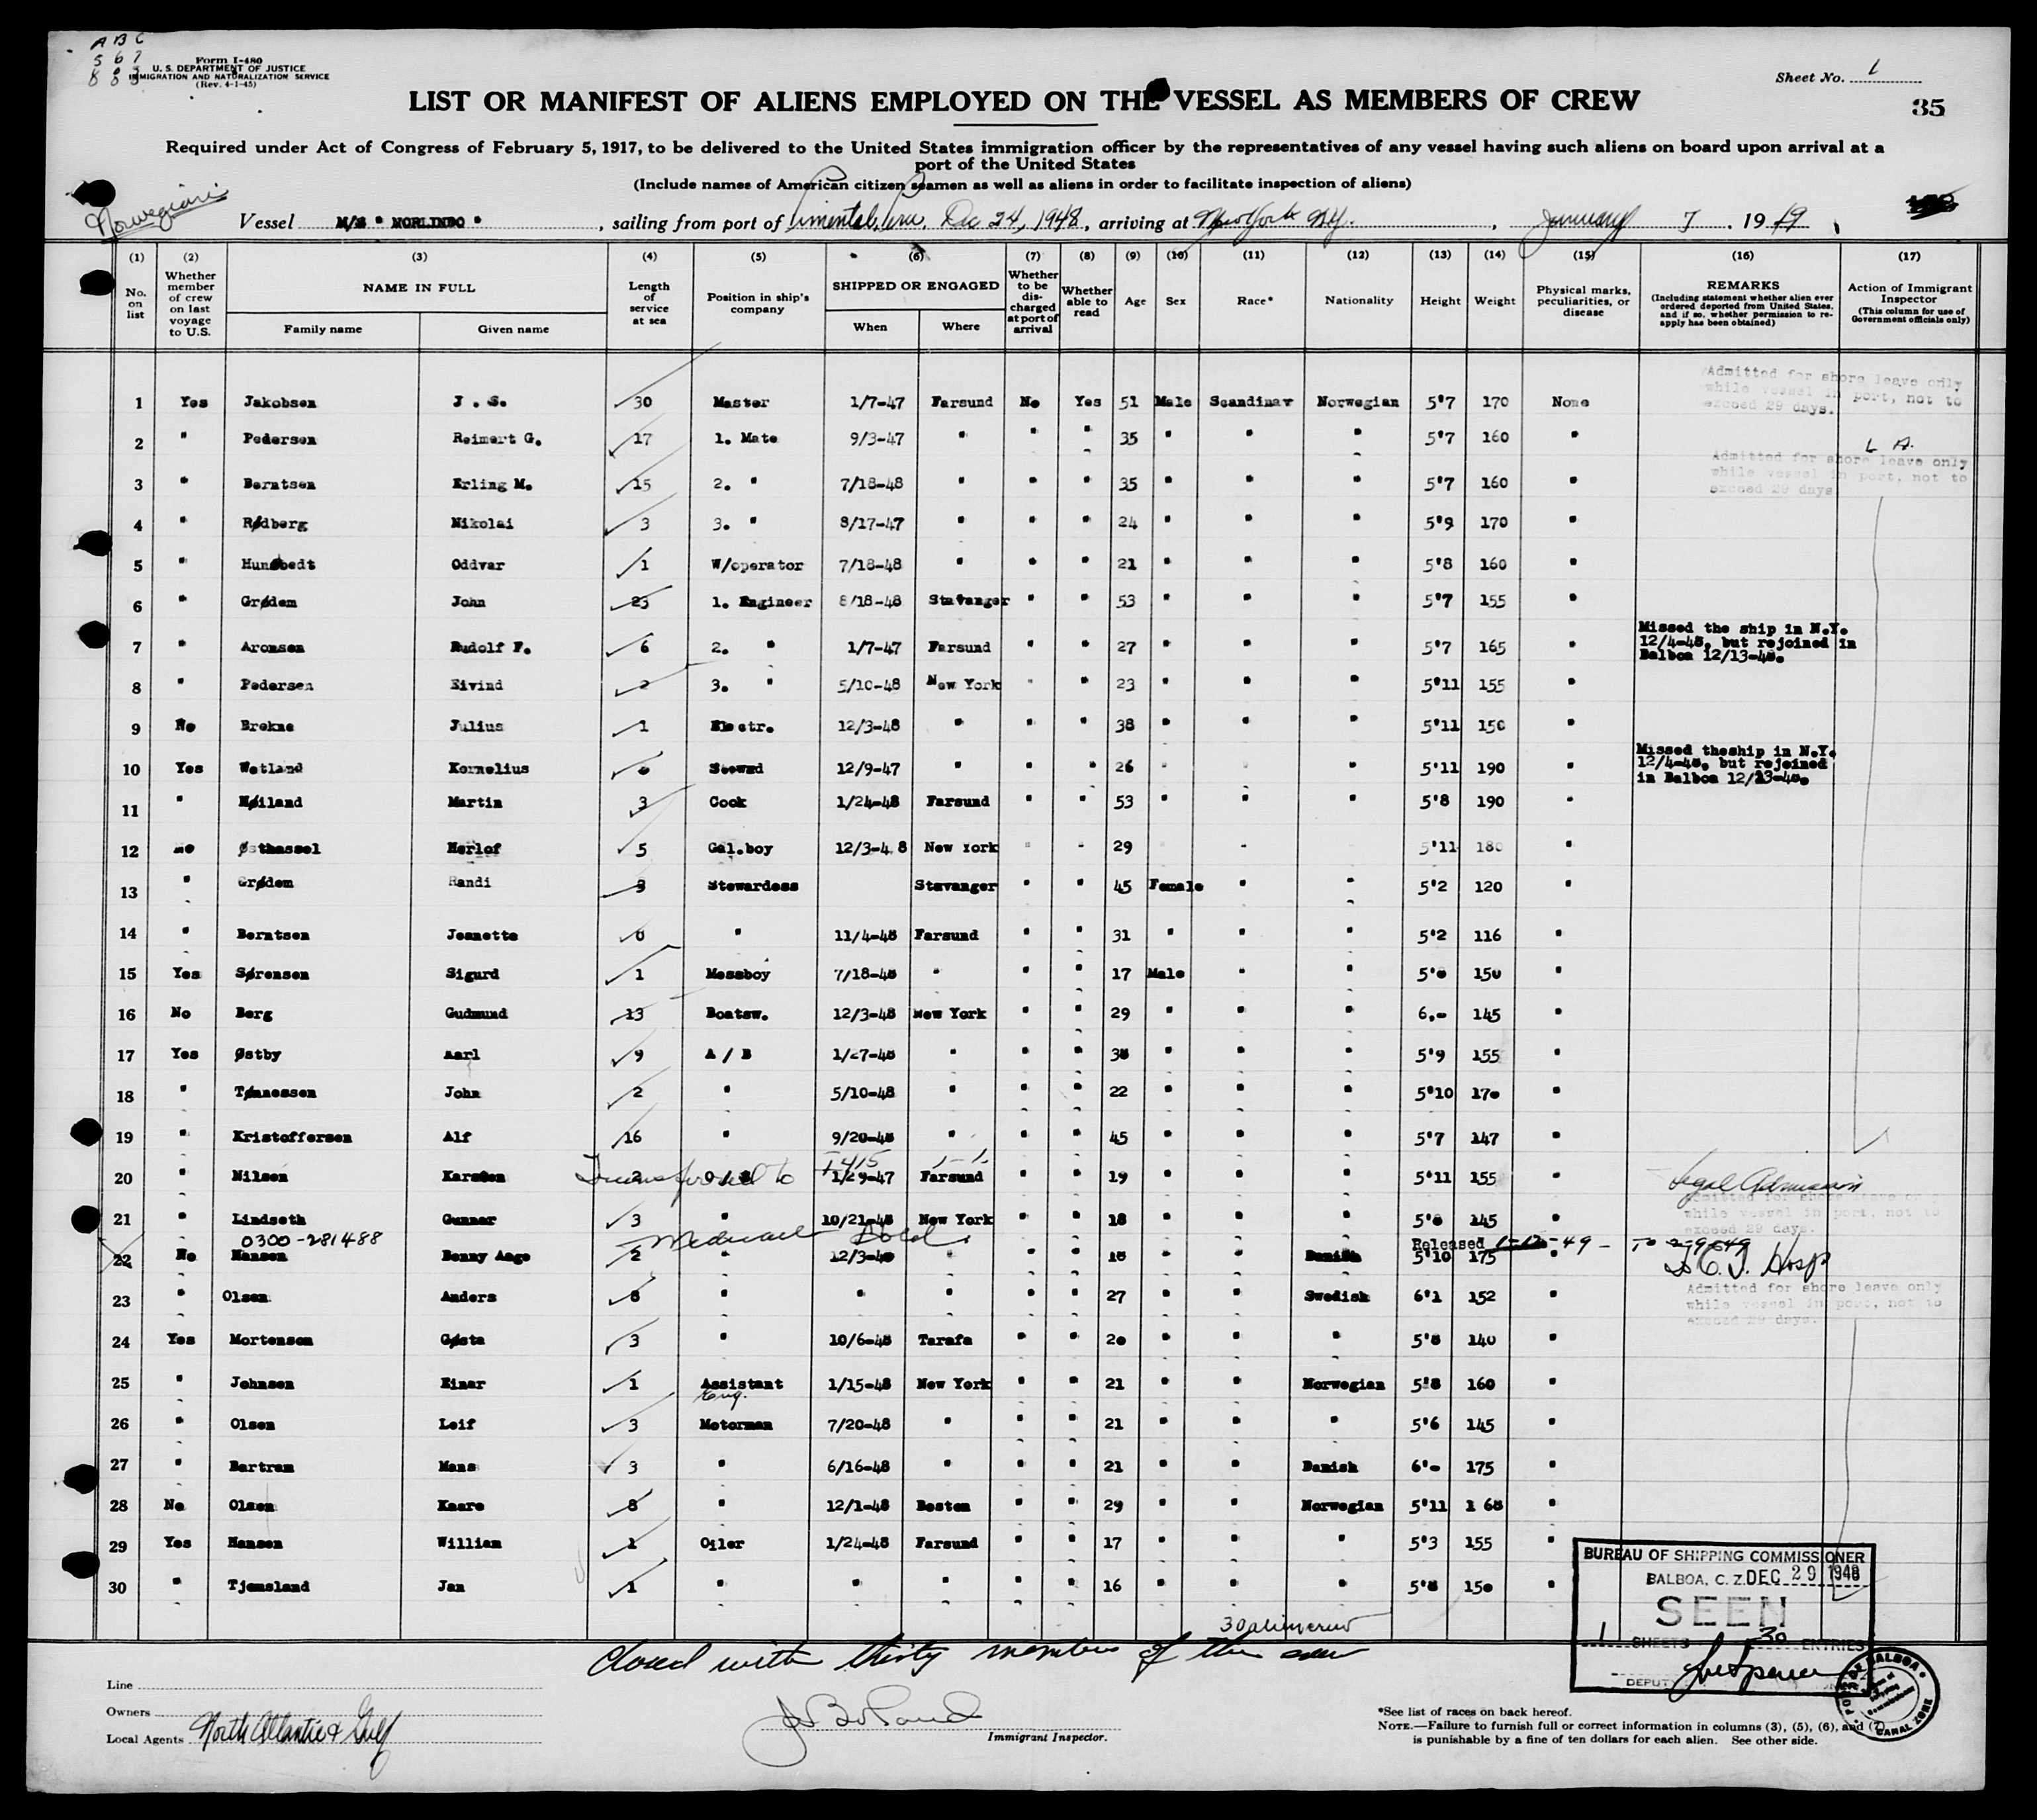 A B C
5 6 7
8
Form I-480
U. S. DEPARTMENT OF JUSTICE
IMMIGRATION AND NATURALIZATION SERVICE
(Rev. 4-1-45)
Sheet No. 1
LIST OR MANIFEST OF ALIENS EMPLOYED ON THE VESSEL AS MEMBERS OF CREW
35
Required under Act of Congress of February 5, 1917, to be delivered to the United States immigration officer by the representatives of any vessel having such aliens on board upon arrival at a
port of the United States
(Include names of American citizen seamen as well as aliens in order to facilitate inspection of aliens)
Norwegian
Vessel M/S " NORLINDO " , sailing from port of Pimentel, Peru, Dec 24, 1948, arriving at New York NY. , January 7 , 19 49
(1) (2) (3) (4) (5) (6) (7) (8) (9) (10) (11) (12) (13) (14) (15) (16) (17)
No. on list
Whether member of crew on last voyage to U.S.
NAME IN FULL
Family name
Given name
Length of service at sea
Position in ship's company
SHIPPED OR ENGAGED
When
Where
Whether to be discharged at port of arrival
Whether able to read
Age
Sex
Race*
Nationality
Height
Weight
Physical marks, peculiarities, or disease
REMARKS
(Including statement whether alien ever ordered deported from United States, and if so, whether permission to reapply has been obtained)
Action of Immigrant Inspector
(This column for use of Government officials only)
Admitted for shore leave only
while vessel in port, not to
exceed 29 days.
1 Yes Jakobsen J . S. 30 Master 1/7-47 Farsund No Yes 51 Male Scandinav Norwegian 5'7 170 None
2 " Pedersen Reimert G. 17 1. Mate 9/3-47 " " " 35 " " " 5'7 160 "
L A.
Admitted for shore leave only
while vessel in port, not to
exceed 29 days
3 " Berntsen Erling M. 15 2. " 7/18-48 " " " 35 " " " 5'7 160 "
4 " Rødberg Nikolai 3 3. " 8/17-47 " " " 24 " " " 5'9 170 "
5 " Hunsbedt Oddvar 1 W/operator 7/18-48 " " " 21 " " " 5'8 160 "
6 " Grødem John 25 1. Engineer 8/18-48 Stavanger " " 53 " " " 5'7 155 "
7 " Aronsen Rudolf F. 6 2. " 1/7-47 Farsund " " 27 " " " 5'7 165 " Missed the ship in N.Y. 12/4-48, but rejoined in Balboa 12/13-48.
8 " Pedersen Eivind 2 3. " 5/10-48 New York " " 23 " " " 5'11 155 "
9 No Brekne Julius 1 Electr. 12/3-48 " " " 38 " " " 5'11 150 "
10 Yes Wetland Kornelius 6 Steward 12/9-47 " " " 26 " " " 5'11 190 " Missed theship in N.Y. 12/4-48, but rejoined in Balboa 12/13-48.
11 " Høiland Martin 3 Cook 1/24-48 Farsund " " 53 " " " 5'8 190 "
12 No Østhassel Herlof 5 Gal.boy 12/3-48 New York " " 29 " 5'11 180 "
13 " Grødem Randi 3 Stewardess Stavanger " " 45 Female " " 5'2 120 "
14 " Berntsen Jeanette 0 " 11/4-48 Farsund " " 31 " " " 5'2 116 "
15 Yes Sørensen Sigurd 1 Messboy 7/18-48 " " " 17 Male " " 5'8 150 "
16 No Berg Gudmund 13 Boatsw. 12/3-48 New York " " 29 " " " 6,- 145 "
17 Yes Østby Karl 9 A / B 1/27-48 " " " 38 " " " 5'9 155 "
18 " Tønnessen John 2 " 5/10-48 " " " 22 " " " 5'10 170 "
19 " Kristoffersen Alf 16 " 9/20-48 " " " 45 " " " 5'7 147 "
Transferred to I-415
20 " Nilsen Karsten 2 1/29-47 Farsund " " 19 " " " 5'11 155 " Legal Admission
Admitted for shore leave only
while vessel in port, not to
exceed 29 days.
21 " Lindseth Gunnar 3 " 10/21-48 New York " " 18 " " " 5'8 145 "
0300-281488
Medical Hold
Released 1-12-49 - To 2-9-49
22 No Hansen Benny Aage 2 " 12/3-48 " " " 18 " " Danish 5'10 175 " Hosp
Admitted for shore leave only
while vessel in port, not to
exceed 29 days.
23 " Olsen Anders 8 " " " " " 27 " " Swedish 6'1 152 "
24 Yes Mortensen Gøsta 3 " 10/6-48 Tarafa " " 20 " " " 5'8 140 "
25 " Johnsen Einar 1 Assistant Eng. 1/15-48 New York " " 21 " " Norwegian 5'8 160 "
26 " Olsen Leif 3 Motorman 7/20-48 " " " 21 " " " 5'6 145 "
27 " Bartram Hans 3 " 6/16-48 " " " 21 " " Danish 6'- 175 "
28 No Olsen Kaare 8 " 12/1-48 Boston " " 29 " " Norwegian 5'11 168 "
29 Yes Hansen William 1 Oiler 1/24-48 Farsund " " 17 " " " 5'3 155 "
30 " Tjemsland Jan 1 " " " " " 16 " " " 5'8 150 "
BUREAU OF SHIPPING COMMISSIONER
BALBOA, C. Z. DEC 29 1948
SEEN
1 SHEETS 30 ENTRIES
DEPUTY
PORT OF BALBOA
CANAL ZONE
30 alien crew
Closed with thirty members of the crew
Line
Owners
Local Agents North Atlantic & Gulf
Immigrant Inspector.
*See list of races on back hereof.
NOTE.—Failure to furnish full or correct information in columns (3), (5), (6), and (7)
is punishable by a fine of ten dollars for each alien. See other side.